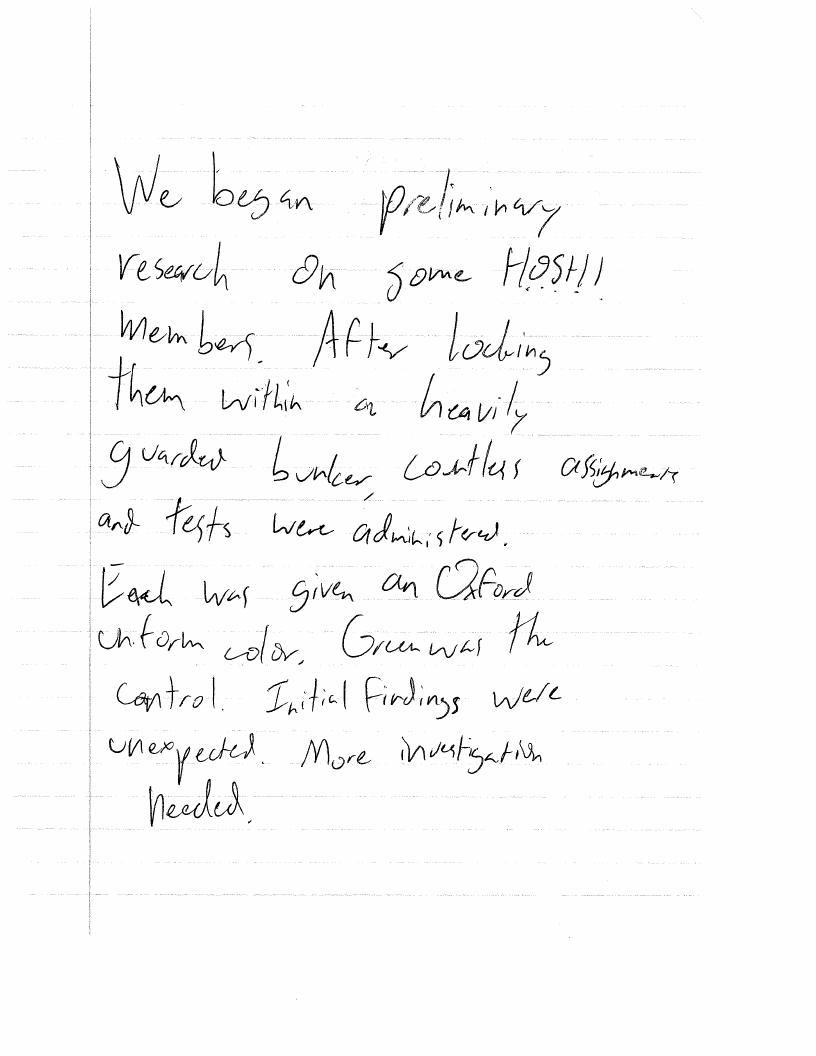 We began preliminary
research on some H.O.S.H.I.
members. After locking
them within a heavily
guarded bunker, countless assignments
and tests were administered.
Each was given an Oxford
uniform color. Green was the
control. Initial findings were
unexpected. More investigation
needed.